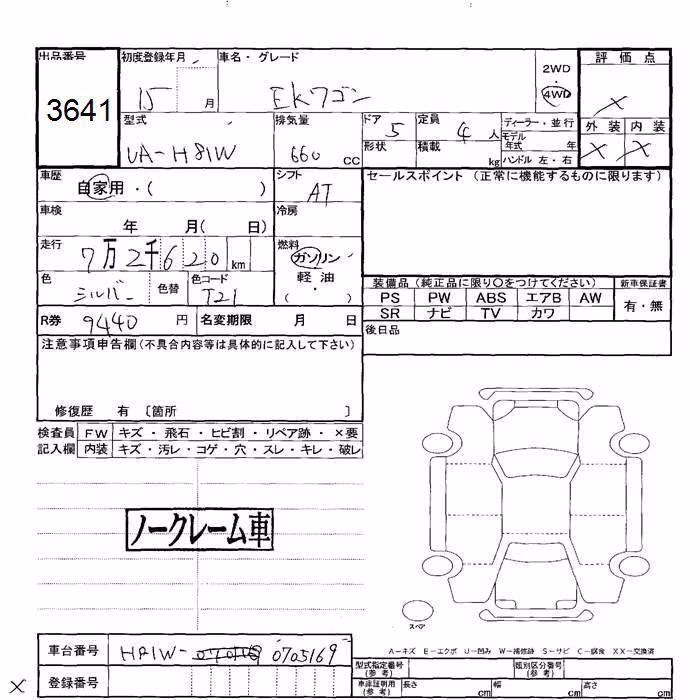 出品番号 初度登録年月 車名・グレード 2WD 評価点
3641 15 月 EKワゴン 4WD ×
型式 排気量 ドア 5 定員 4 人 ディーラー・並行 外装 内装
UA-H81W 660 cc 形状 積載 kg モデル年式 年 × ×
ハンドル 左・右
車歴 自家用・( ) シフト AT セールスポイント (正常に機能するものに限ります)
車検 年 月( 日) 冷房
走行 7万2千620 km 燃料 ガソリン・
軽油・
( )
色 シルバー 色替 色コード T21
装備品 (純正品に限り○をつけてください) 新車保証書
PS PW ABS エアB AW 有・無
SR ナビ TV カワ
R券 9440 円 名変期限 月 日 後日品
注意事項申告欄 (不具合内容等は具体的に記入して下さい)
修復歴 有 〔箇所 〕
検査員 FW キズ・飛石・ヒビ割・リペア跡・×要
記入欄 内装 キズ・汚レ・コゲ・穴・スレ・キレ・破レ
ノークレーム車
スペア
A-キズ E-エクボ U-凹み W-補修跡 S-サビ C-腐食 XX-交換済
車台番号 H81W- 0705169
型式指定番号(参考) 類別区分番号(参考)
× 登録番号
車庫証明用(参考) 長さ cm 幅 cm 高さ cm